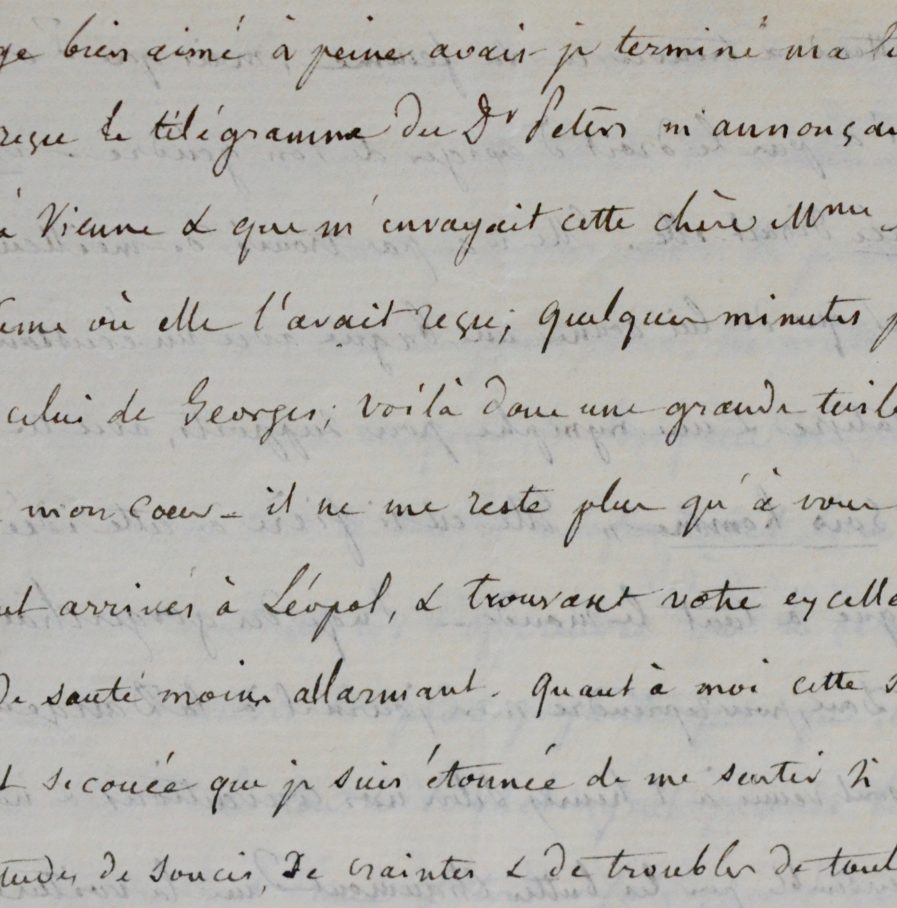 ge bien aimé à peine avais je terminé ma le
reçu le télégramme du Dr Peters m'annonçai
à Vienne & que m'envoyait cette chère Mme
ème où elle l'avait reçu; quelques minutes p
celui de Georges; voilà donc une grande tuile
mon coeur - il ne me reste plus qu'à vous
nt arrivés à Léopol, & trouvant votre excelle
de santé moins allarmant. Quant à moi cette s
t secouée que je suis étonnée de me sentir si
tudes de soucis, de craintes & de troubles de tout